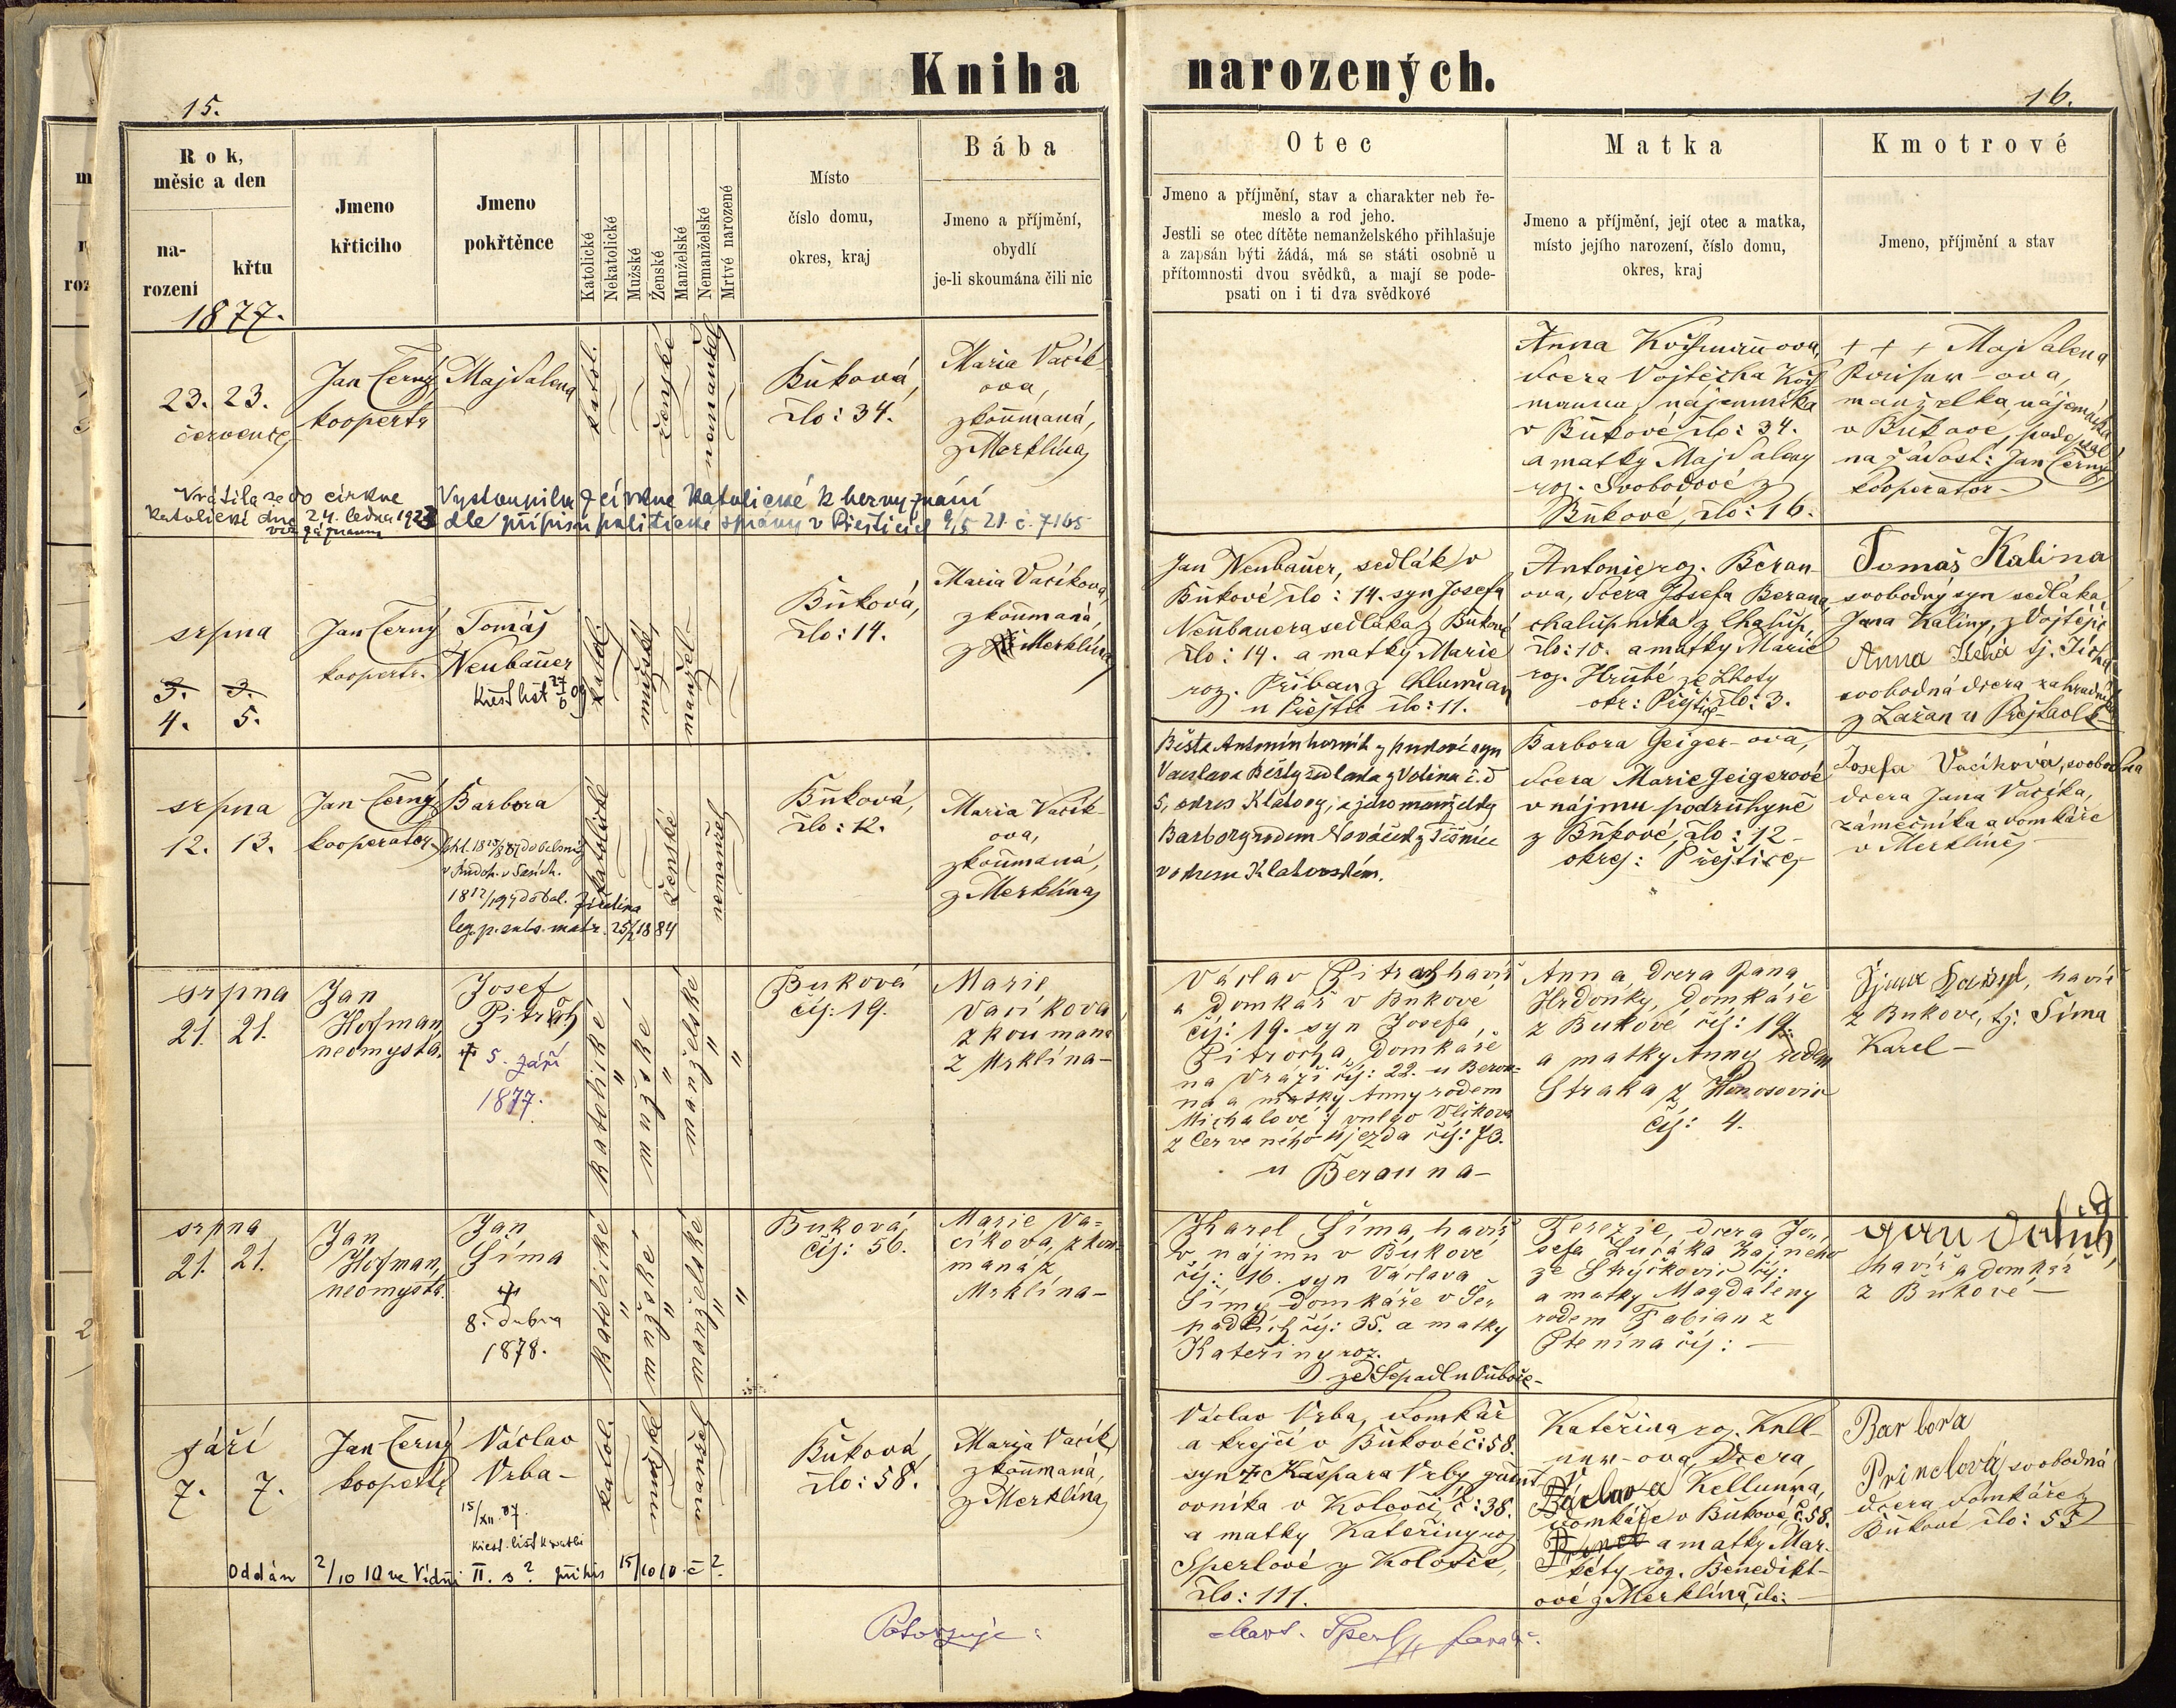 Kniha narozených.
15.
16.
Rok,
měsic a den
na-
rozeni
křtu
Jmeno
křticího
Jmeno
pokřtěnce
Katolické
Nekatolické
Mužské
Ženské
Manželské
Nemanželské
Mrtvé narozené
Místo
číslo domu,
okres, kraj
Bába
Jmeno a příjmění,
obydlí
je-li skoumána čili nic
Otec
Jmeno a příjmění, stav a charakter neb ře-
meslo a rod jeho.
Jestli se otec dítěte nemanželského přihlašuje
a zapsán býti žádá, má se státi osobně u
přítomnosti dvou svědků, a mají se pode-
psati on i ti dva svědkové
Matka
Jmeno a příjmění, její otec a matka,
místo jejího narození, číslo domu,
okres, kraj
Kmotrové
Jmeno, příjmění a stav
1877.
23. 23.
července
Jan Černý
Majdalena
katol.
ženské
nemanžel
Bůková,
čslo: 34.
Maria Vačík-
ova,
zkoůmaná,
z Merklína
Anna
dcera Vojtěcha
nájemníka
v Bůkové čslo: 34.
a matky Majdaleny
roz. Svobodové z
Bůkové, čslo: 16.
+ + + Majdalena
manželka nájemníka
v Bůkové, podepsal
na žádost: Jan Černý
kooperator
Vrátila se do církve
katolické dne 24. ledna 1923
Vystoupila z církve katolické k bezvyznání
dle přípisu politické správy v Přešticích 9/5 21. č. 7165
srpna
3. 3.
4. 5.
Jan Černý
Tomáš
Neubaůer
křest. list 27/6 09
katol.
mužské
manžel
Bůková,
čslo: 14.
Maria Vačíkova,
zkoůmaná,
z Merklína
Jan Neubaůer, sedlák v
Bůkové čslo: 14. syn Josefa
Neůbauera sedláka z Bůkové
čslo: 14. a matky Marie
roz. Přiban z Chlumčan
u Přeštic čslo: 11.
Antonie roz. Beran-
ova, dcera Josefa Berana
chalůpníka z Chalůp
čslo: 10. a matky Marie
roz. Hrůbé ze Lhoty
okr: Přeštice čslo: 3.
Tomáš Kalina
svobodný syn sedláka
Jana Kaliny, z Vojtěšic
Anna tj. Tichá
svobodná dcera zahradníka
z Lažan u
srpna
12. 13.
Jan Černý
kooperator
Barbora
leg. p. subs. matr. 25/2 1884
katolické
ženské
nemanžel
Bůková,
čslo: 12.
Maria Vačík-
ova,
zkoůmaná,
z Merklína
Běšta Antonín horník z
Václava Běšty sedláka z Volína č. d
5, okres Klatovy, a jeho manželky
Barbory rodem Nováček z Těšnic
v okresu Klatovském.
Barbora Geiger-ova,
dcera Marie Geigerové
v nájmu podrůhyně
z Bůkové, čslo: 12
okres: Přeštice
Josefa Vačíková, svobodna
dcera Jana Vačíka,
zámečníka a domkáře
v Merklíně
srpna
21. 21.
Jan
Hofman,
neomysta.
Josef
Pitroch
† 5. září
1877.
katolické
mužské
manželské
Buková
čís: 19.
Marie
Vačíkova
zkoumana
z Mrklína-
Václav Pitroch havíř
a domkář v Bukové
čís: 19. syn Josefa
Pitrocha, domkáře
na Dráži čís: 22. u Berou-
na a matky Anny rodem
Michalové vulgo Vlčkova
z Červeného Újezda čís: 73.
u Berauna-
Anna, dcera Jana
Hrdoňky, domkáře
z Bukové čís: 19.
a matky Anny rodem
Straka z Honosovic
čís: 4.
havíř
z Bukové, tj: Šíma
Karel-
srpna
21. 21.
Jan
Hofman,
neomysta.
Jan
Šíma
†
8. dubna
1878.
katolické
mužské
manželské
Buková
čís: 56.
Marie Va=
číkova, zkou-
mana z
Mrklína-
Karel Šíma, havíř
v nájmu v Bukové
čís: 16. syn Václava
Šímy domkáře v Še-
padlích čís: 35. a matky
Kateřiny roz.
Terezie, dcera Jo-
sefa Lučáka hajného
ze Strýčkovic čís:
a matky Magdaleny
rodem Fabian z
Ptenína čís: -
Jan
havíř a domkář
z Bůkové -
září
7. 7.
Jan Černý
Václav
Vrba-
15/XII. 07.
katol.
mužské
manžel
Bůková
čslo: 58.
Marija Vačík,
zkoůmaná,
z Merklína
Václav Vrba, domkář
a krejčí v Bůkové č: 58.
syn † Kašpara Vrby
ovníka v Kolovči, č: 38.
a matky Kateřiny roz
Sperlové z Kolovče,
čslo: 111.
Kateřina roz. Kell-
ner-ova, dcera
Václava Kellnera,
domkáře v Bůkové, č. 58.
a matky Mar-
kéty roz. Benedikt-
ové z Merklína, čslo: -
Barbora
Princlová, svobodná
dcera domkáře z
Bůkové čslo: 55
Oddán 2/10 10 ve Vídni II. s ? přípis 15/10 10 č ?
Potvrzuje:
Mart. Sperl, farář.